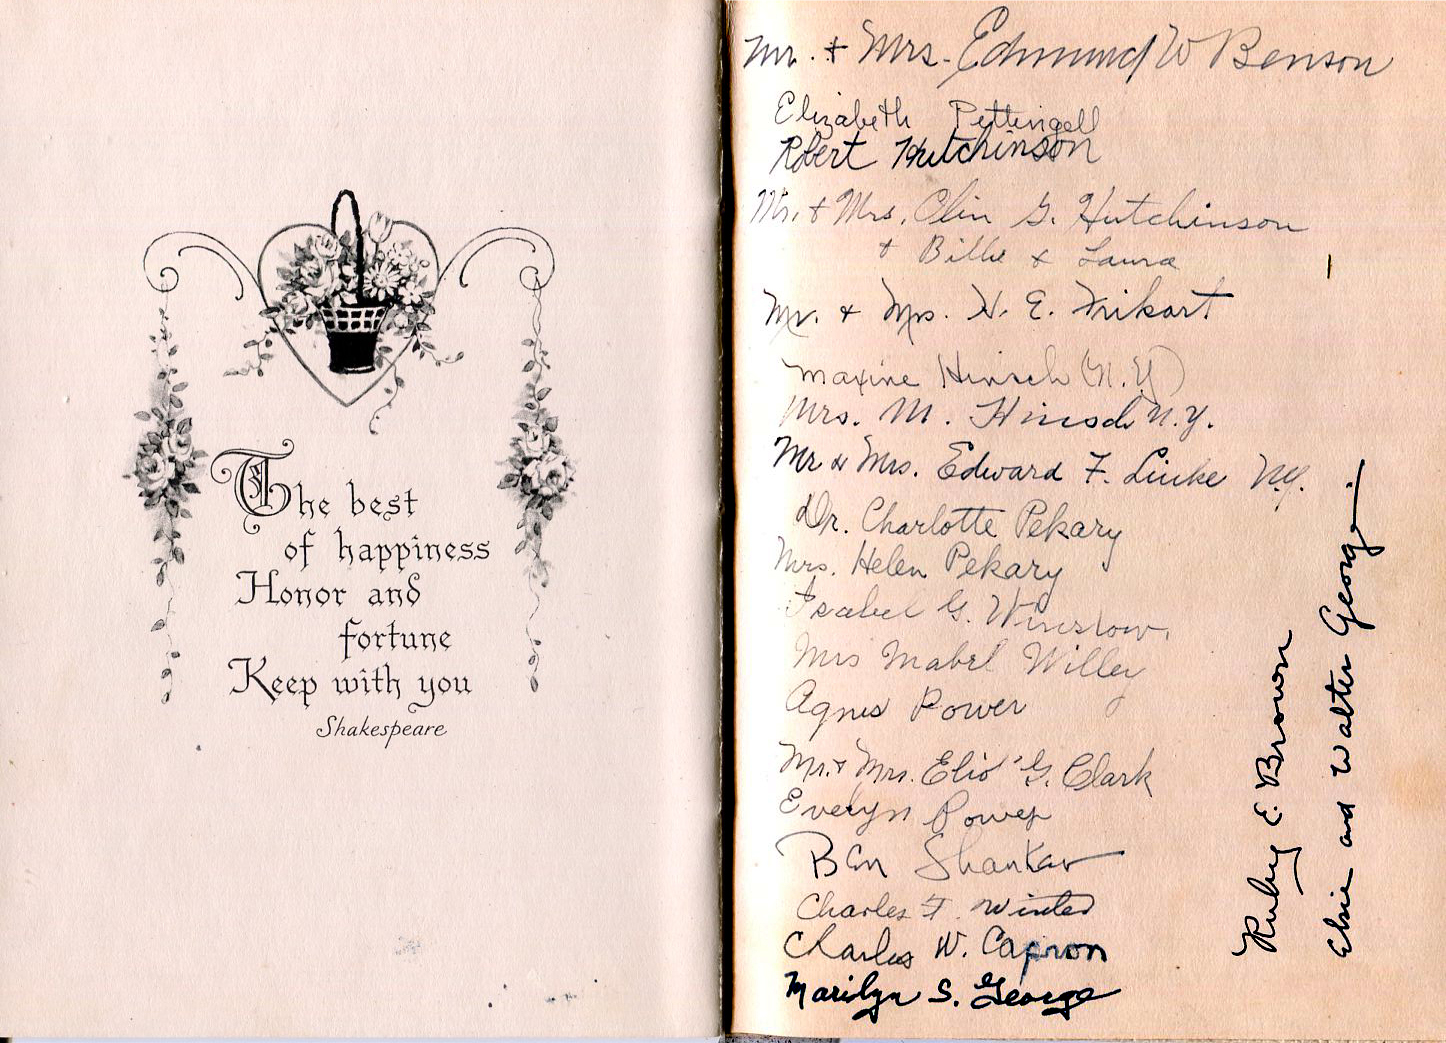 The best
of happiness
Honor and
fortune
Keep with you
Shakespeare
Mr. & Mrs. Edmund W Benson
Elizabeth Pettingell
Robert Hutchinson
Mr. & Mrs. Olin G. Hutchinson
& Billie & Laura
Mr. & Mrs. H. E. Frikart
Maxine Hinsch (N.Y)
Mrs. M. Hinsch N.Y.
Mr & Mrs. Edward F. Linke N.Y.
Dr. Charlotte Pekary
Mrs. Helen Pekary
Isabel G. Winslow.
Mrs Mabel Willey
Agnes Power
Mr. & Mrs. G. Clark
Evelyn Power
Ben
Charles F. Winter
Charles W. Capron
Marilyn S. George
Ruby E. Brown
Elsie and Walter George